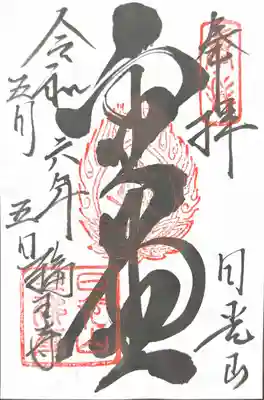 奉拝
日光山
金堂
令和六年
五月
五日
輪王寺